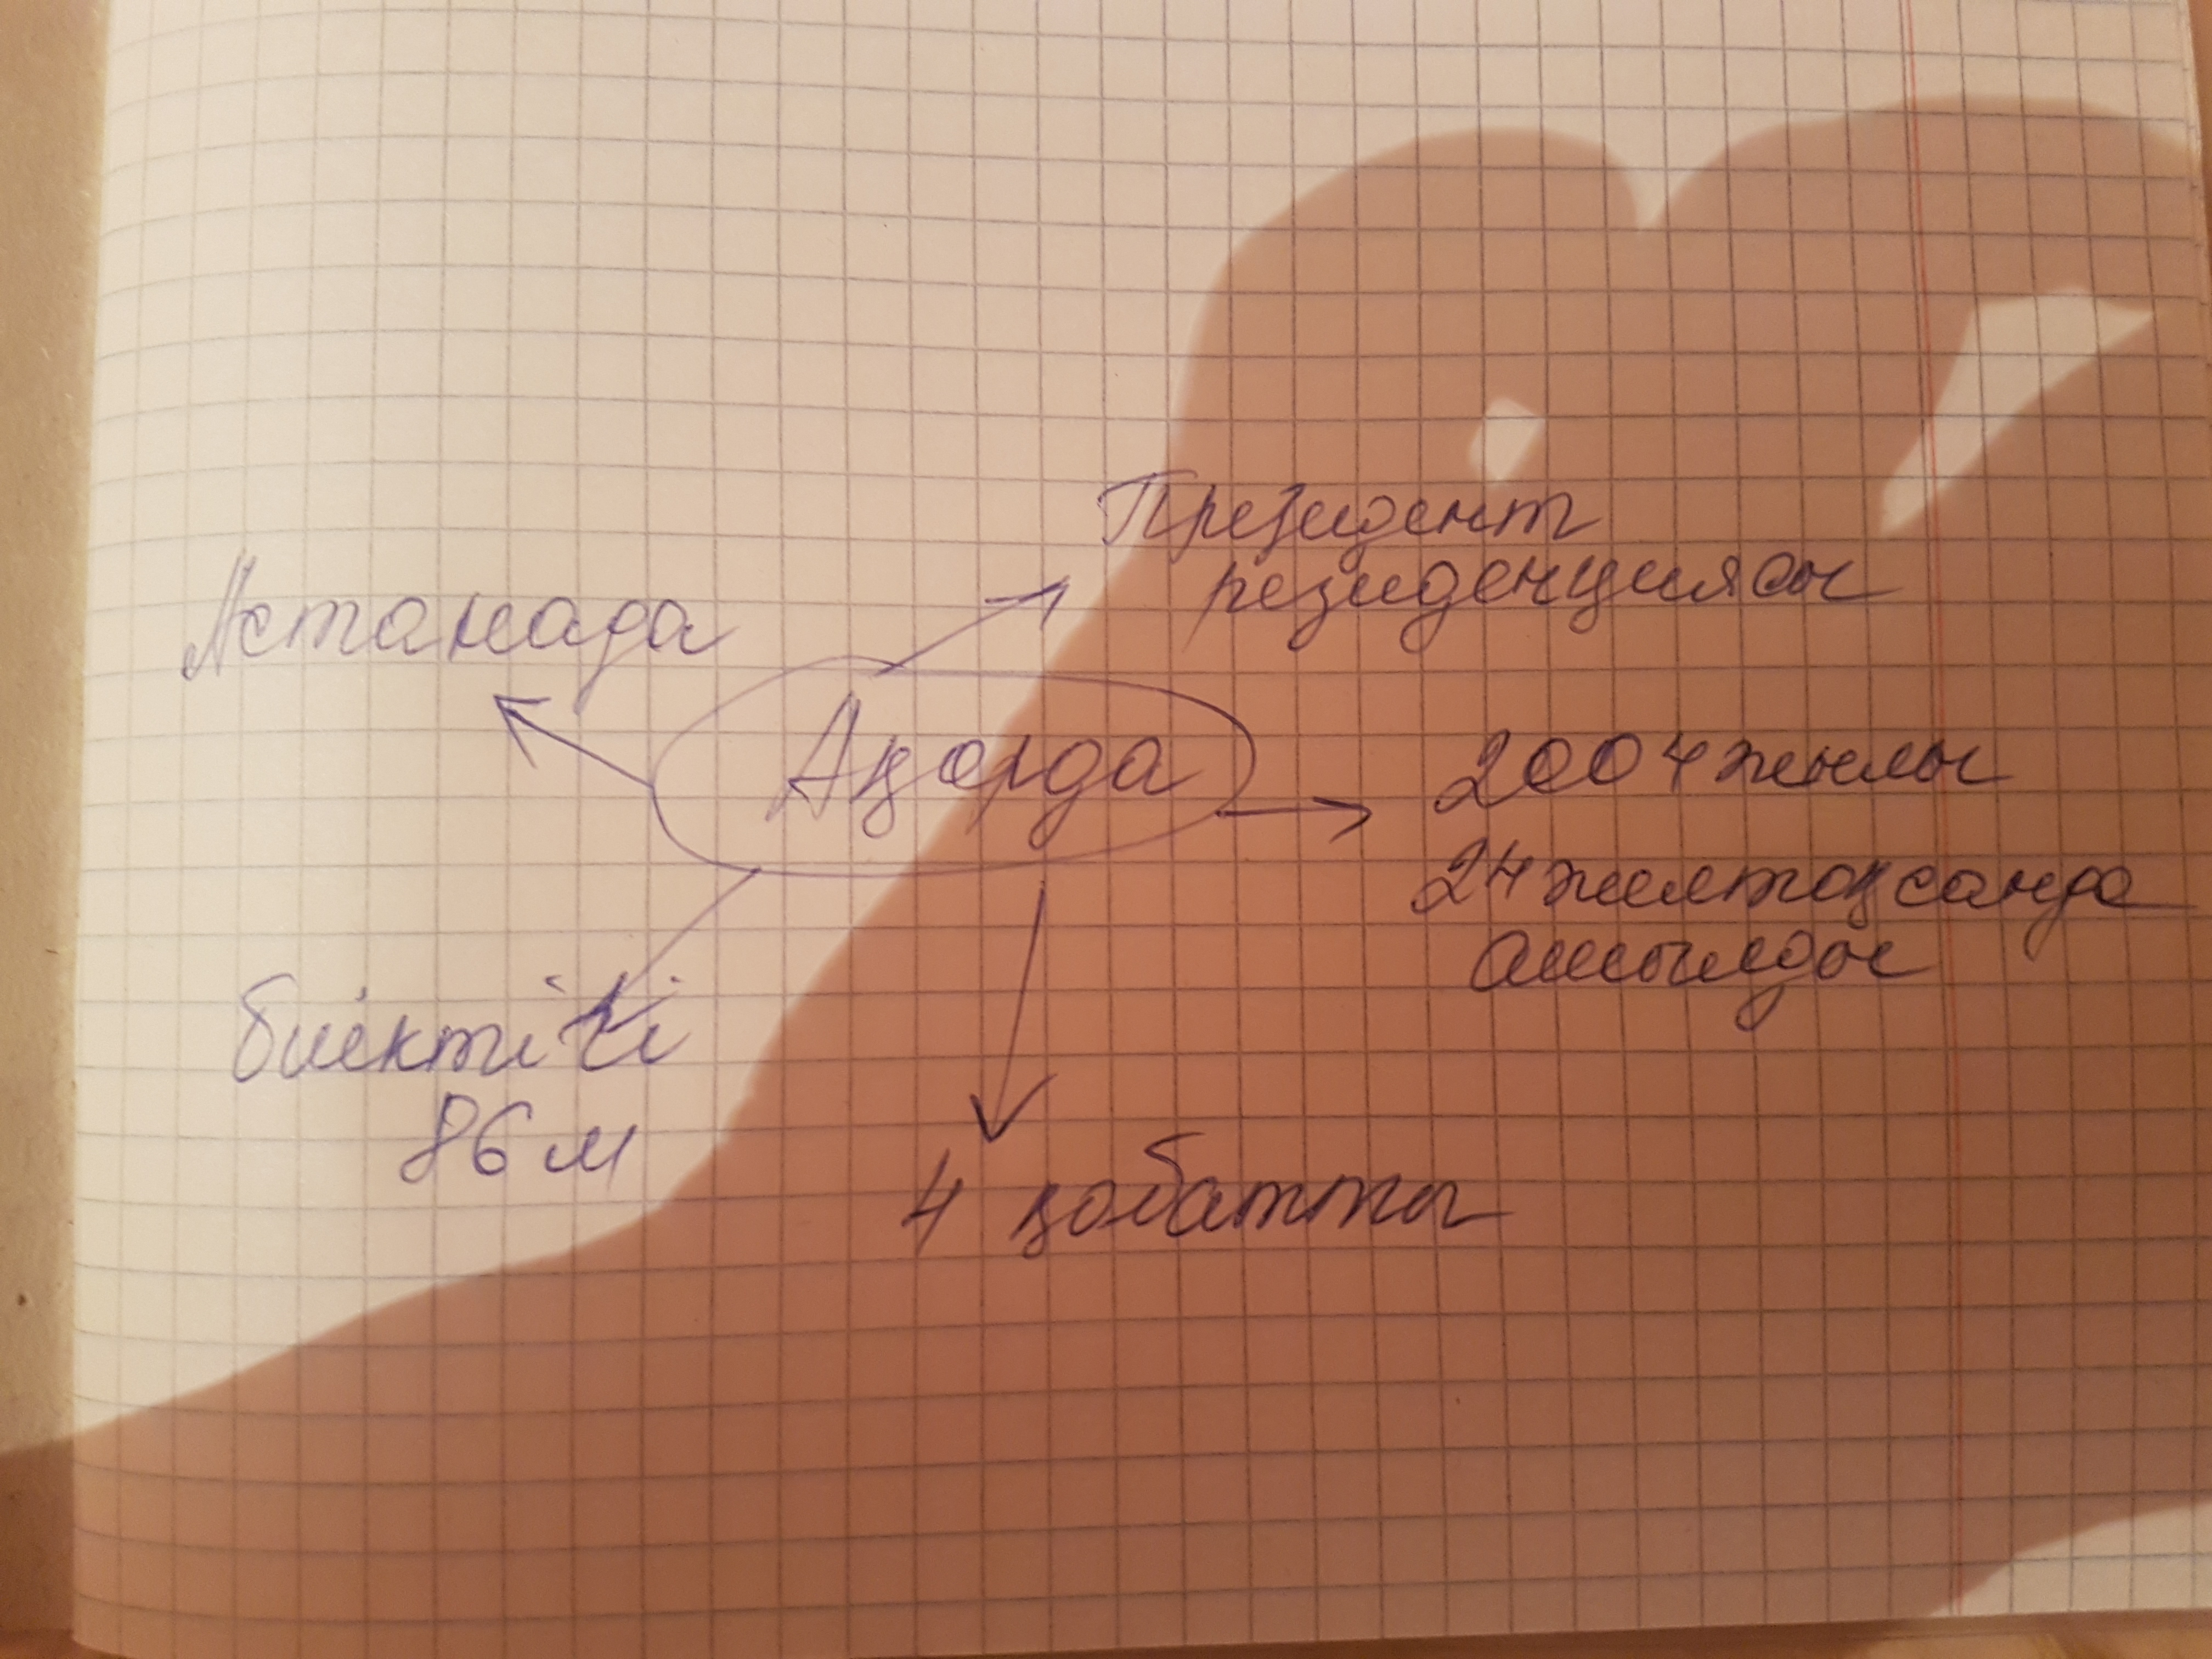 Президент
резиденциясы
Астанада
Ақорда
2004 жылы
24 желтоқсанда
ашылды
биіктігі
86 м
4 қабатты